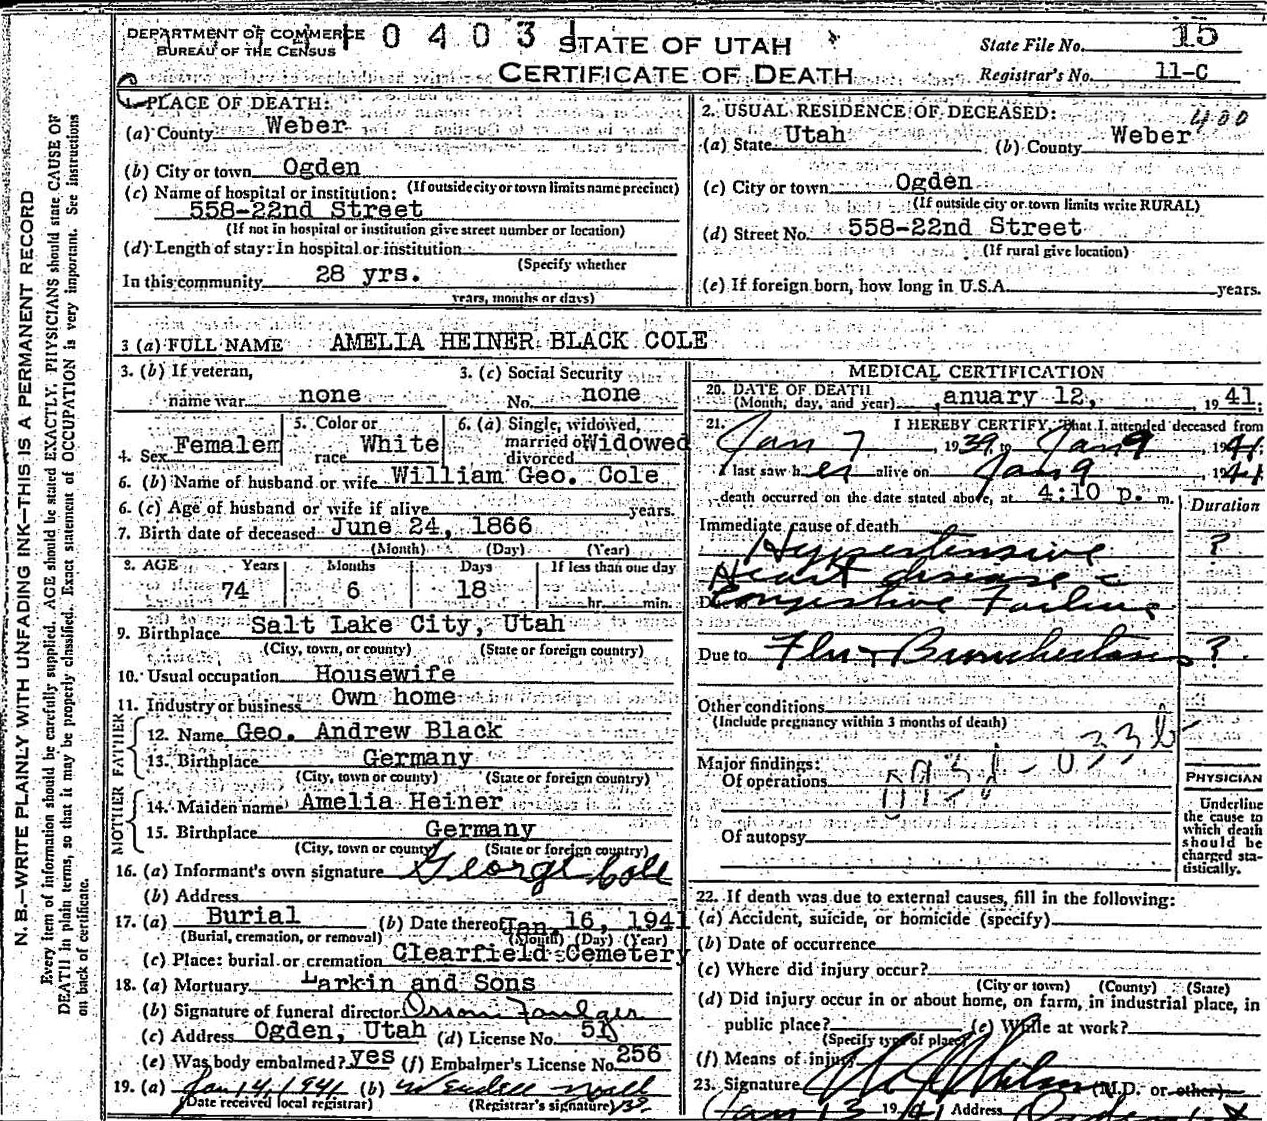 N. B.—WRITE PLAINLY WITH UNFADING INK—THIS IS A PERMANENT RECORD
Every item of information should be carefully supplied. AGE should be stated EXACTLY. PHYSICIANS should state CAUSE OF
DEATH in plain terms, so that it may be properly classified. Exact statement of OCCUPATION is very important. See instructions
on back of certificate.
DEPARTMENT OF COMMERCE
BUREAU OF THE CENSUS
0 4 0 3
STATE OF UTAH
CERTIFICATE OF DEATH
State File No. 15
Registrar's No. 11-C
1. PLACE OF DEATH:
(a) County Weber
(b) City or town Ogden
(c) Name of hospital or institution: (If outside city or town limits name precinct)
558-22nd Street
(If not in hospital or institution give street number or location)
(d) Length of stay: In hospital or institution
(Specify whether
In this community 28 yrs.
years, months or days)
2. USUAL RESIDENCE OF DECEASED: 400
(a) State Utah (b) County Weber
(c) City or town Ogden
(If outside city or town limits write RURAL)
(d) Street No. 558-22nd Street
(If rural give location)
(e) If foreign born, how long in U.S.A. years.
3 (a) FULL NAME AMELIA HEINER BLACK COLE
3. (b) If veteran,
name war none
3. (c) Social Security
No. none
4. Sex Femalem
5. Color or
race White
6. (a) Single, widowed,
married or Widowed
divorced
6. (b) Name of husband or wife William Geo. Cole
6. (c) Age of husband or wife if alive years.
7. Birth date of deceased June 24, 1866
(Month) (Day) (Year)
8. AGE Years Months Days If less than one day
74 6 18 hr. min.
9. Birthplace Salt Lake City, Utah
(City, town, or county) (State or foreign country)
10. Usual occupation Housewife
11. Industry or business Own home
FATHER
12. Name Geo. Andrew Black
13. Birthplace Germany
(City, town or county) (State or foreign country)
MOTHER
14. Maiden name Amelia Heiner
15. Birthplace Germany
(City, town or county) (State or foreign country)
16. (a) Informant's own signature George Cole
(b) Address
17. (a) Burial (b) Date thereof Jan. 16, 1941
(Burial, cremation, or removal) (Month) (Day) (Year)
(c) Place: burial or cremation Clearfield Cemetery
18. (a) Mortuary Larkin and Sons
(b) Signature of funeral director Orson Foulger
(c) Address Ogden, Utah (d) License No. 51
(e) Was body embalmed? yes (f) Embalmer's License No. 256
19. (a) Jan 14, 1941 (b)
(Date received local registrar) (Registrar's signature)
MEDICAL CERTIFICATION
20. DATE OF DEATH
(Month, day, and year) anuary 12, 1941.
21. I HEREBY CERTIFY, That I attended deceased from
Jan 7, 1939, to Jan 9, 1941
I last saw her alive on Jan 9, 1941
death occurred on the date stated above, at 4:10 p. m.
Duration
Immediate cause of death
Hypertensive ?
Heart disease c
Congestive Failure
Due to Flu + ?
Other conditions
(Include pregnancy within 3 months of death)
Major findings:
Of operations
033b
Of autopsy
PHYSICIAN
Underline
the cause to
which death
should be
charged sta-
tistically.
22. If death was due to external causes, fill in the following:
(a) Accident, suicide, or homicide (specify)
(b) Date of occurrence
(c) Where did injury occur?
(City or town) (County) (State)
(d) Did injury occur in or about home, on farm, in industrial place, in
public place? (e) While at work?
(Specify type of place)
(f) Means of injury
23. Signature (M.D. or other)
Jan 13 1941 Address Ogden